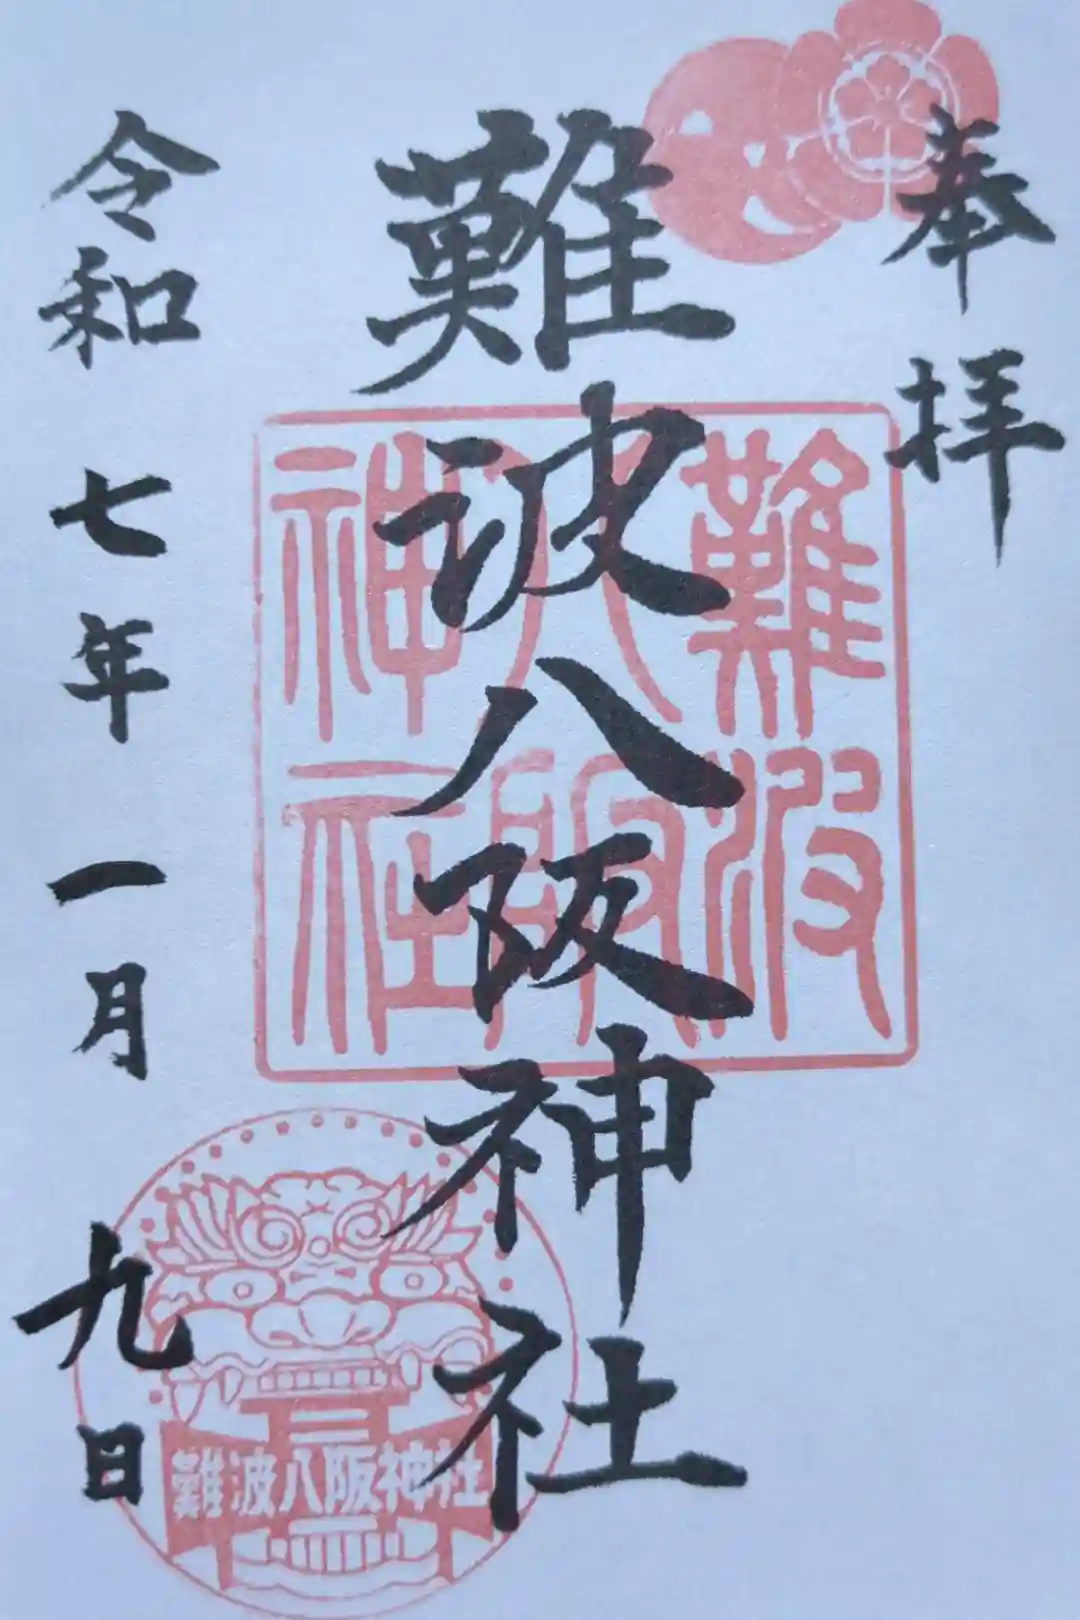 奉拝
難波八阪神社
令和七年一月九日
難波
八阪
神社
難波八阪神社